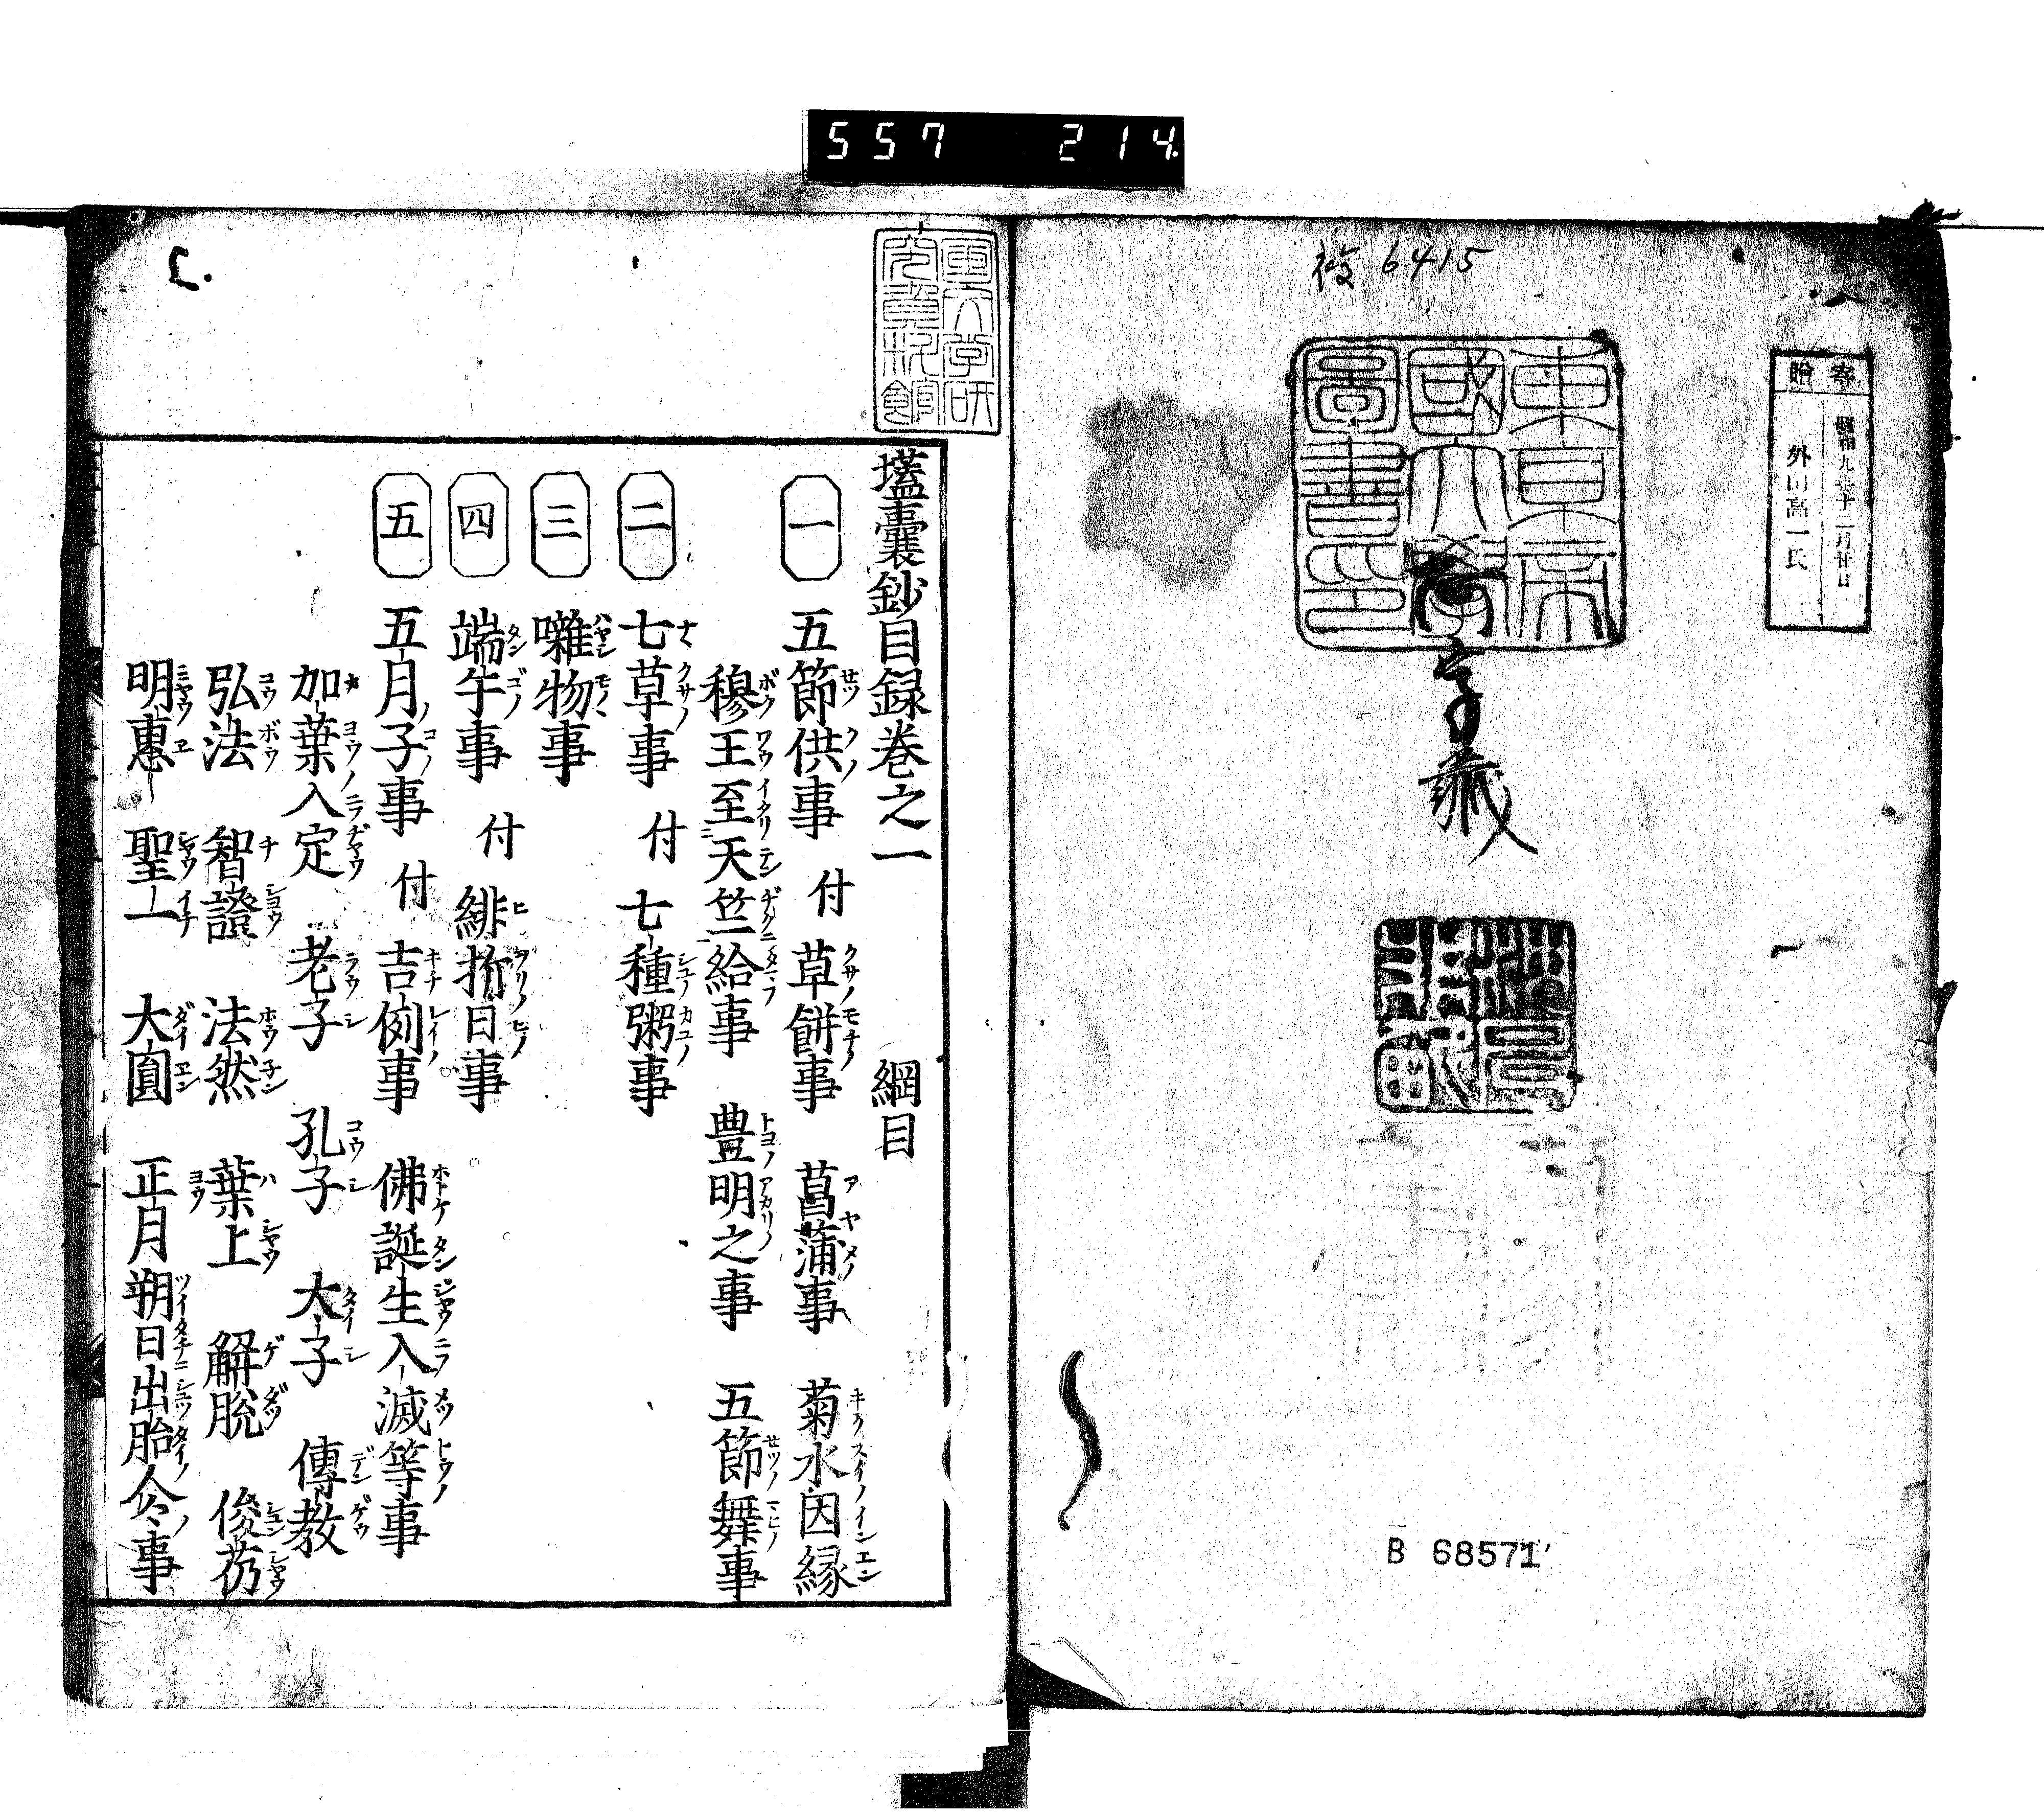 557 214
複 6415
寄贈
昭和九年十二月廿日
東京帝國大學圖書印
B 68571
国文学研究資料館
壒囊鈔目録巻之一　綱目
一　五節供事　付　草餅事　菖蒲事　菊水因縁
穆王至天竺給事　豊明之事　五節舞事
二　七草事　付　七種粥事
三　囃物事
四　端午事　付　緋折日事
五　五月子事　付　吉例事　佛誕生入滅等事
加葉入定　老子　孔子　太子　傳教
弘法　智證　法然　葉上　解脱　俊芿
明惠　聖一　大圓　正月朔日出胎人々事